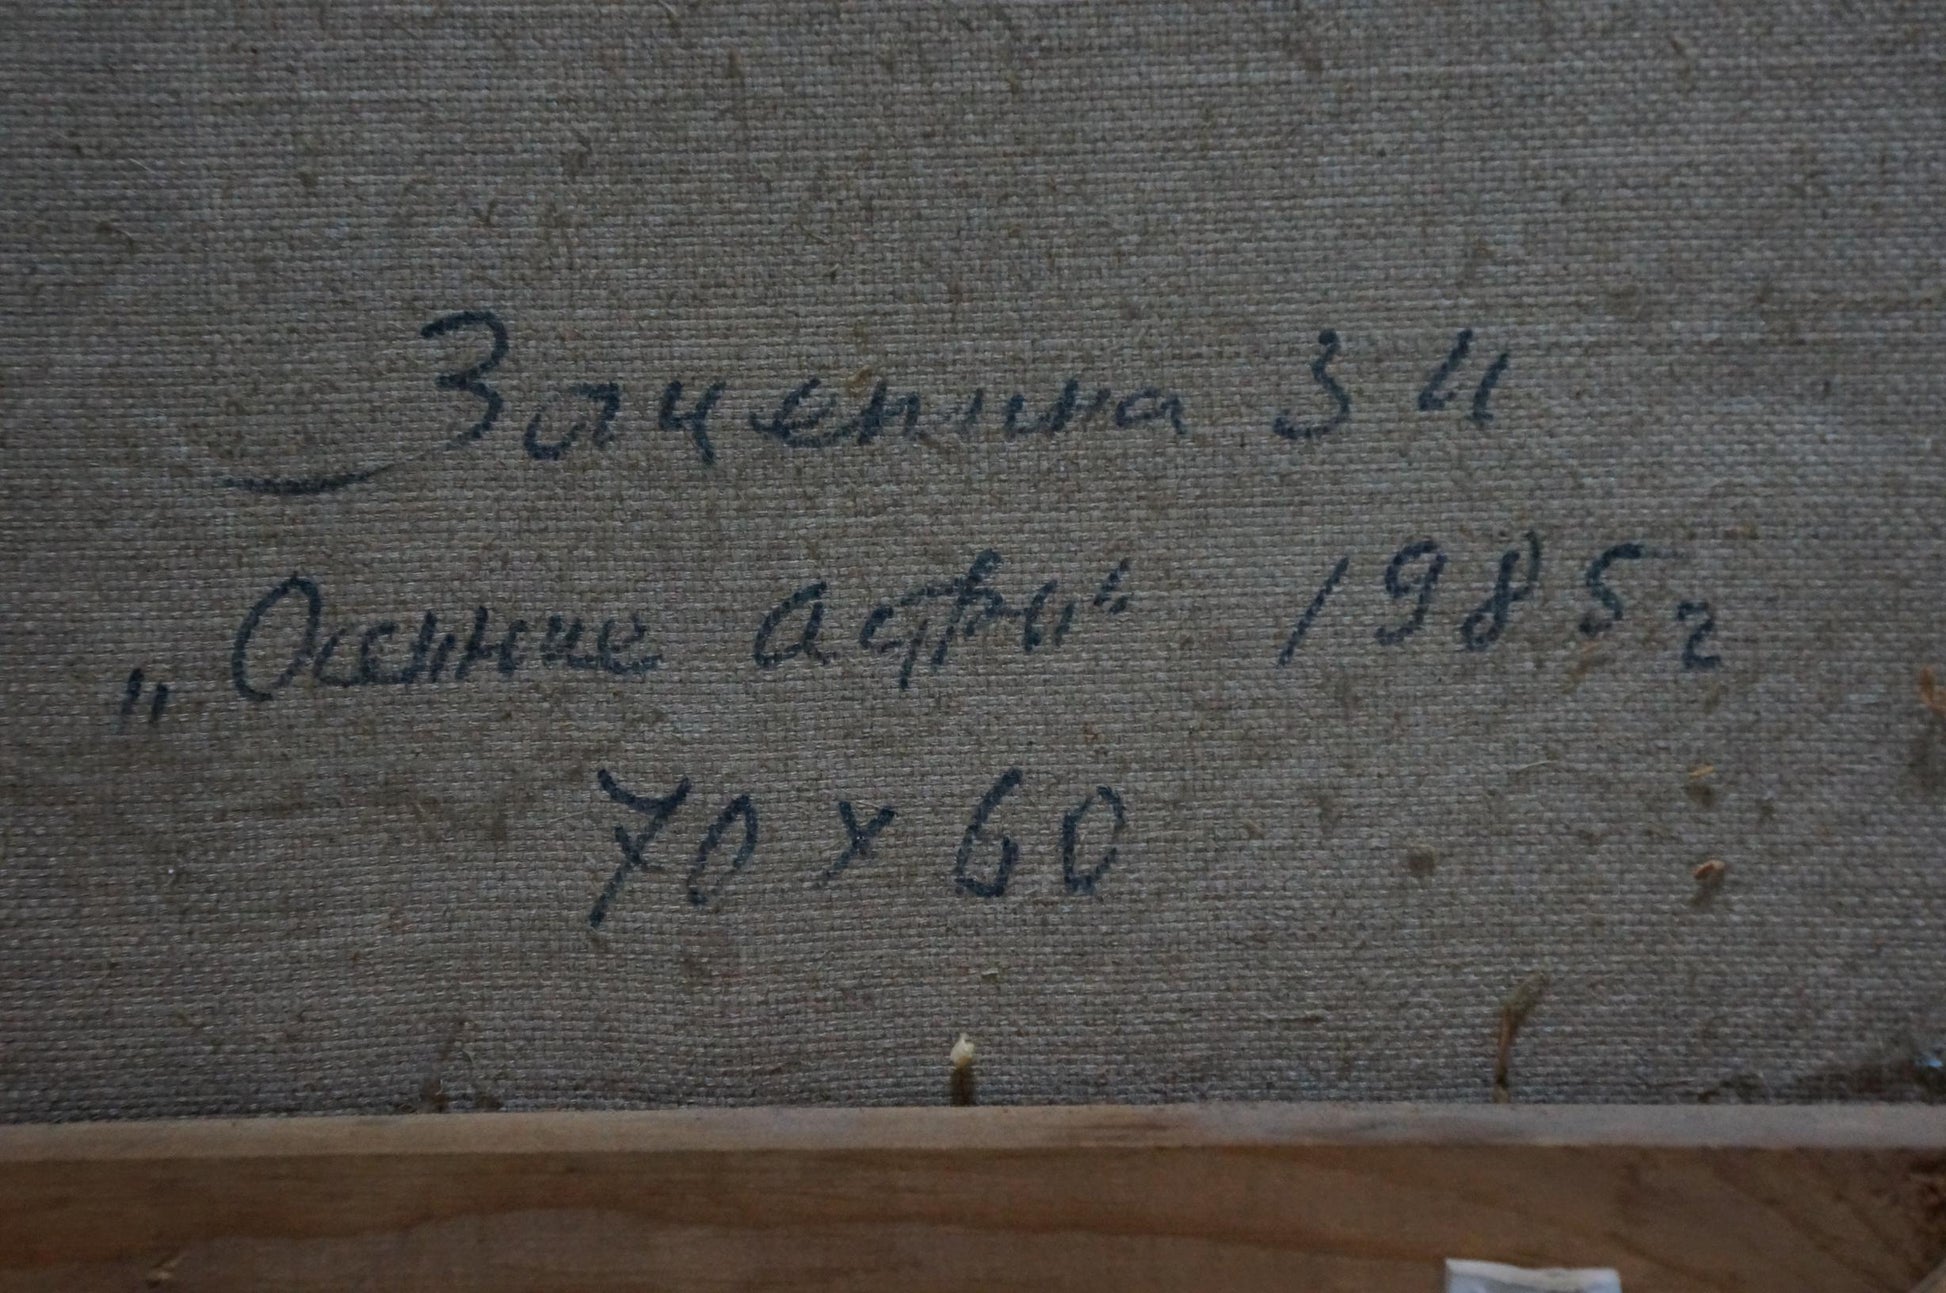 Зацепина З И
„Осенние астры“ 1985 г
70 х 60